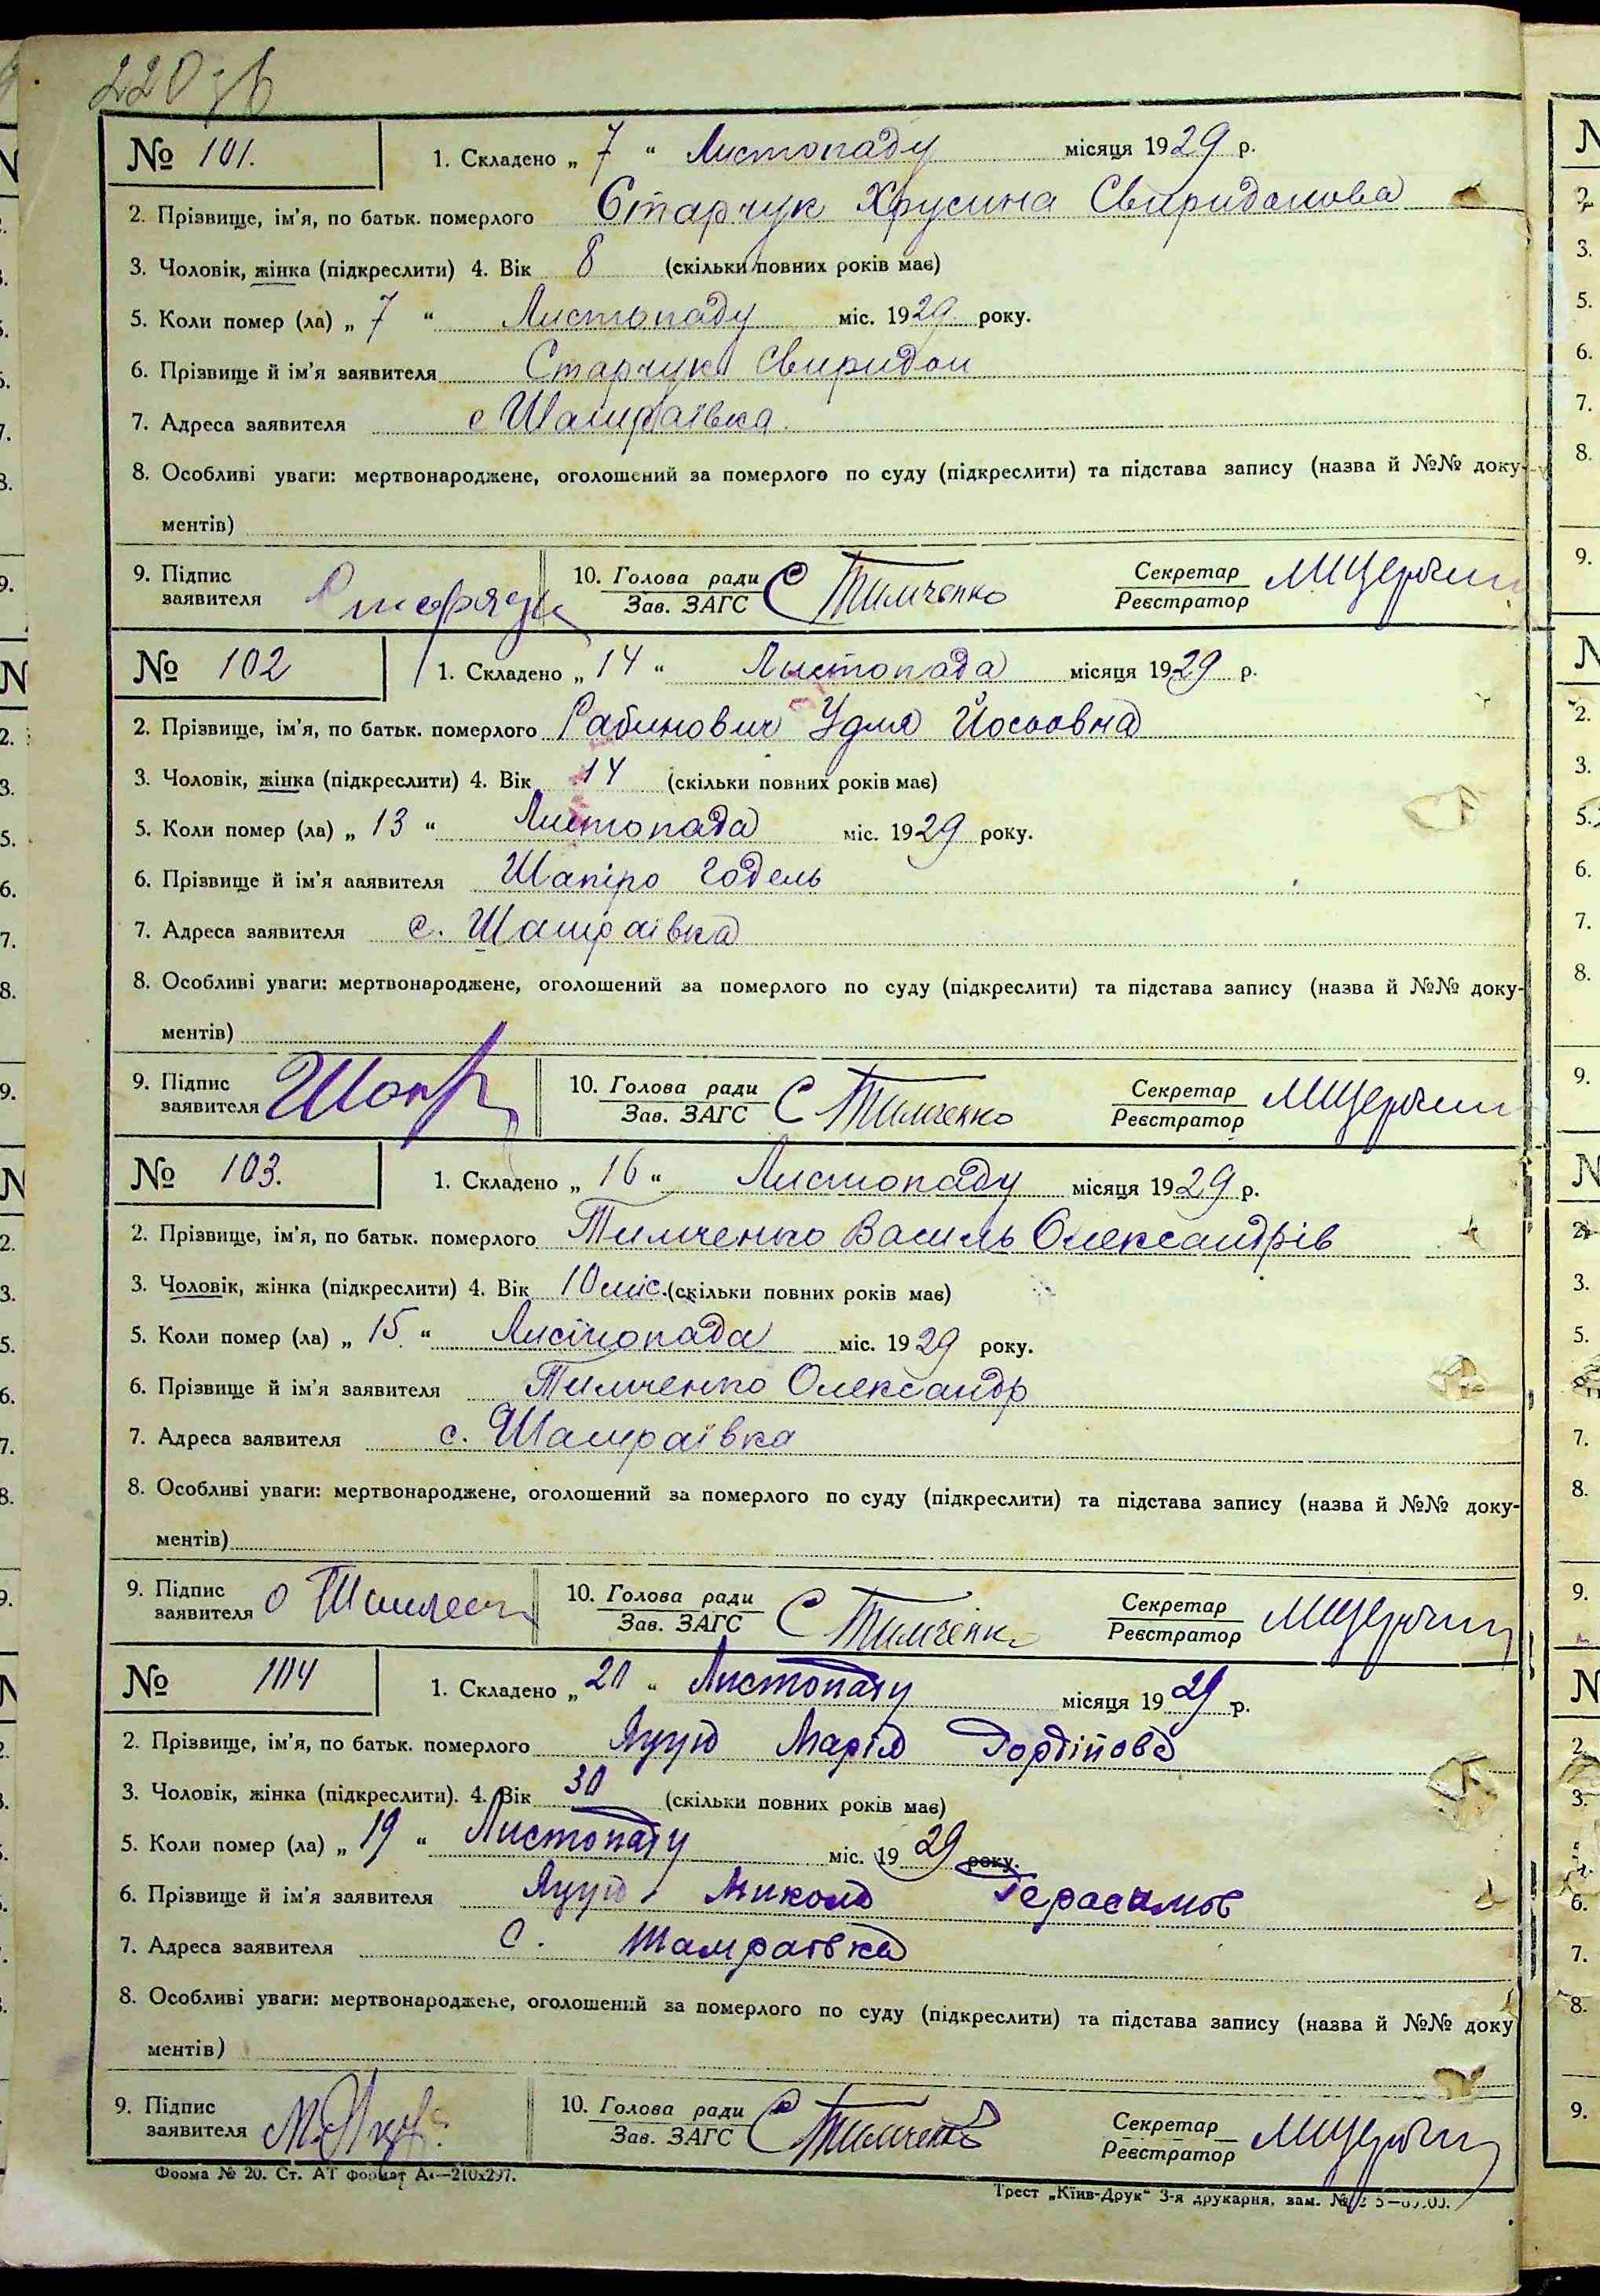 220 зв
№ 101. 1. Складено „ 7 “ Листопаду місяця 1929 р.
2. Прізвище, ім’я, по батьк. померлого Старчук Хрусина Свиридонова
3. Чоловік, жінка (підкреслити) 4. Вік 8 (скільки повних років має)
5. Коли помер (ла) „ 7 “ Листопаду міс. 1929 року.
6. Прізвище й ім’я заявителя Старчук Свиридон
7. Адреса заявителя с Шамраївка
8. Особливі уваги: мертвонароджене, оголошений за померлого по суду (підкреслити) та підстава запису (назва й №№ доку-
ментів)
9. Підпис заявителя 10. Голова ради Зав. ЗАГС С Тимченко Секретар Реєстратор
№ 102 1. Складено „ 14 “ Листопада місяця 1929 р.
2. Прізвище, ім’я, по батьк. померлого Рабинович Удля Йосьовна
3. Чоловік, жінка (підкреслити) 4. Вік 14 (скільки повних років має)
5. Коли помер (ла) „ 13 “ Листопада міс. 1929 року.
6. Прізвище й ім’я заявителя Шапіро Годель
7. Адреса заявителя с. Шамраївка
8. Особливі уваги: мертвонароджене, оголошений за померлого по суду (підкреслити) та підстава запису (назва й №№ доку-
ментів)
9. Підпис заявителя 10. Голова ради Зав. ЗАГС С Тимченко Секретар Реєстратор
№ 103. 1. Складено „ 16 “ Листопаду місяця 1929 р.
2. Прізвище, ім’я, по батьк. померлого Тимченко Василь Олександрів
3. Чоловік, жінка (підкреслити) 4. Вік 10 міс. (скільки повних років має)
5. Коли помер (ла) „ 15 “ Листопада міс. 1929 року.
6. Прізвище й ім’я заявителя Тимченко Олександр
7. Адреса заявителя с. Шамраївка
8. Особливі уваги: мертвонароджене, оголошений за померлого по суду (підкреслити) та підстава запису (назва й №№ доку-
ментів)
9. Підпис заявителя 10. Голова ради Зав. ЗАГС С Тимченко Секретар Реєстратор
№ 104 1. Складено „ 20 “ Листопаду місяця 1929 р.
2. Прізвище, ім’я, по батьк. померлого Яцун Марія Гордійова
3. Чоловік, жінка (підкреслити). 4. Вік 30 (скільки повних років має)
5. Коли помер (ла) „ 19 “ Листопаду міс. 1929 року.
6. Прізвище й ім’я заявителя Яцун Микола Герасимов
7. Адреса заявителя с. Шамраівка
8. Особливі уваги: мертвонароджене, оголошений за померлого по суду (підкреслити) та підстава запису (назва й №№ доку
ментів)
9. Підпис заявителя 10. Голова ради Зав. ЗАГС С Тимченко Секретар Реєстратор
Форма № 20. Ст. АТ формат А4—210x297.
Трест „Київ-Друк“ 3-я друкарня, зам. №